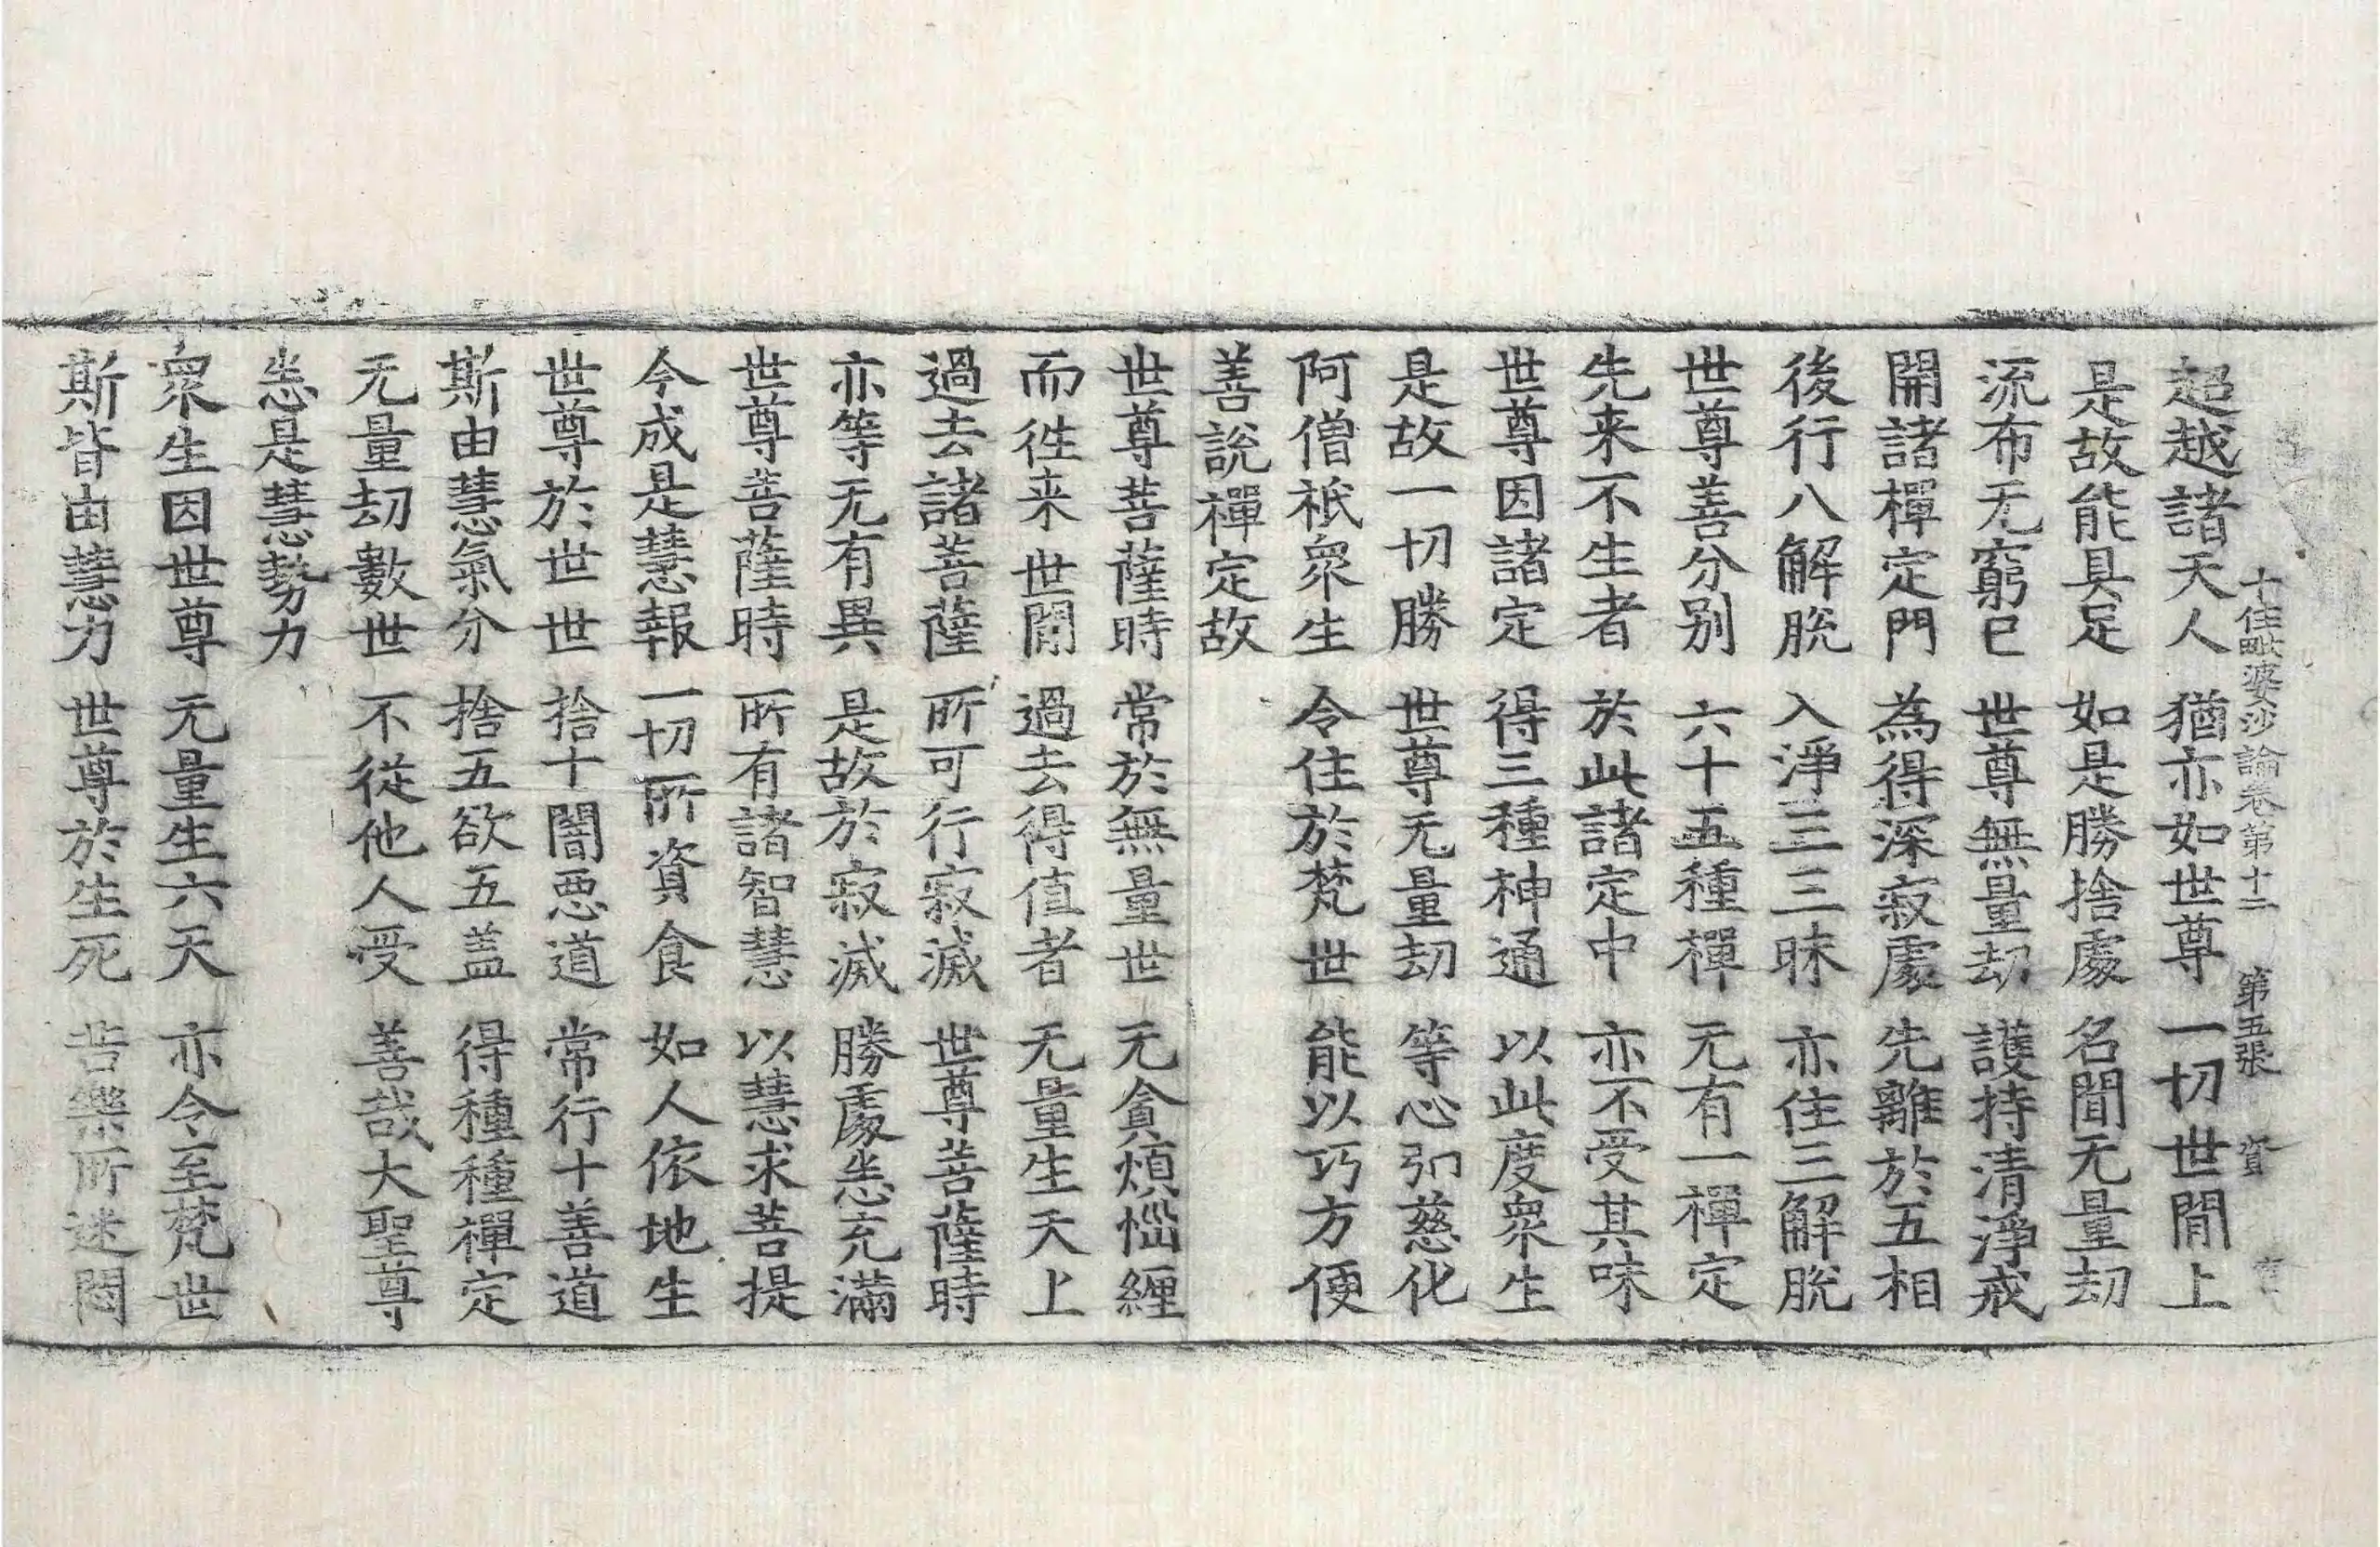 十住毗婆沙論卷第十二 第五張 資
超越諸天人 猶亦如世尊 一切世閒上
是故能具足 如是勝捨處 名聞无量劫
流布无窮已 世尊無量劫 護持清淨戒
開諸禪定門 為得深寂處 先離於五相
後行八解脫 入淨三三昧 亦住三解脫
世尊善分別 六十五種禪 无有一禪定
先来不生者 於此諸定中 亦不受其味
世尊因諸定 得三種神通 以此度衆生
是故一切勝 世尊无量劫 等心引慈化
阿僧祇衆生 令住於梵世 能以巧方便
善說禪定故
世尊菩薩時 常於無量世 无貪煩惱纏
而往来世閒 過去得值者 无量生天上
過去諸菩薩 所可行寂滅 世尊菩薩時
亦等无有異 是故於寂滅 勝處恙充滿
世尊菩薩時 所有諸智慧 以慧求菩提
今成是慧報 一切所資食 如人依地生
世尊於世世 捨十闇惡道 常行十善道
斯由慧氣分 捨五欲五盖 得種種禪定
无量劫數世 不從他人受 善哉大聖尊
恙是慧勢力
衆生因世尊 无量生六天 亦令至梵世
斯皆由慧力 世尊於生死 苦樂所迷悶